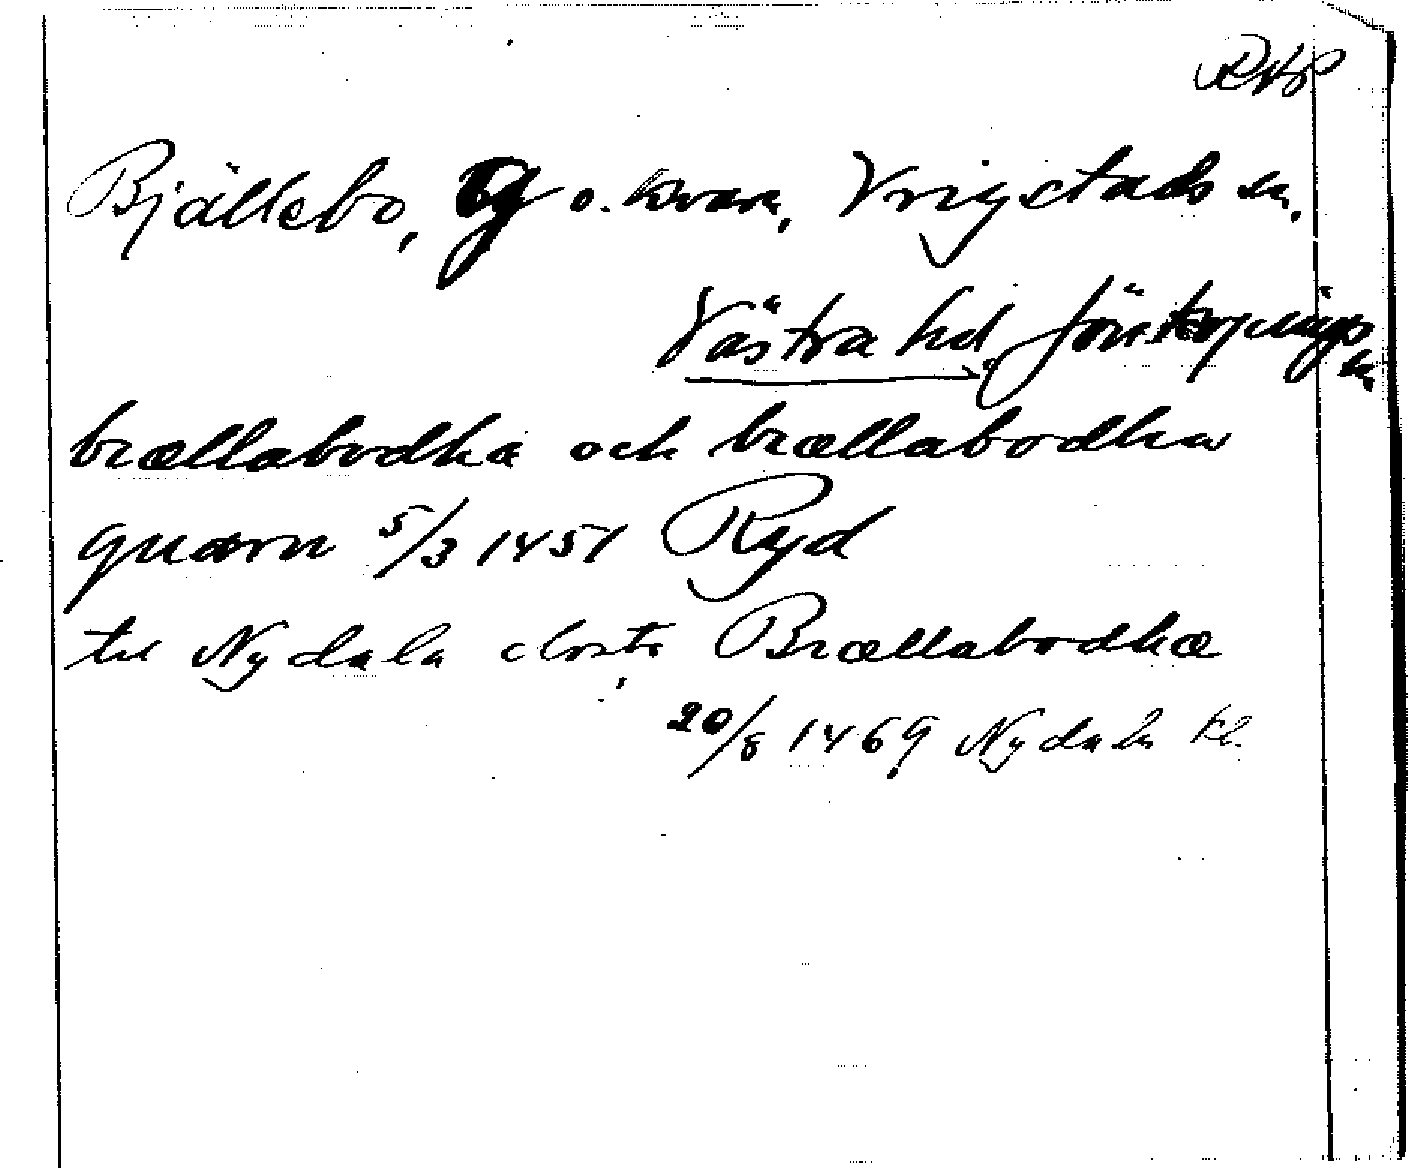 RAP
Bjällebo, g o. kvarn, Vrigstads sn,
Västra hd, Jönköpings
ln
brællabodha och brællabodha
quærn 5/3 1451 Ryd
til Nydala closte Brællabodhæ
20/8 1469 Nydala kl.